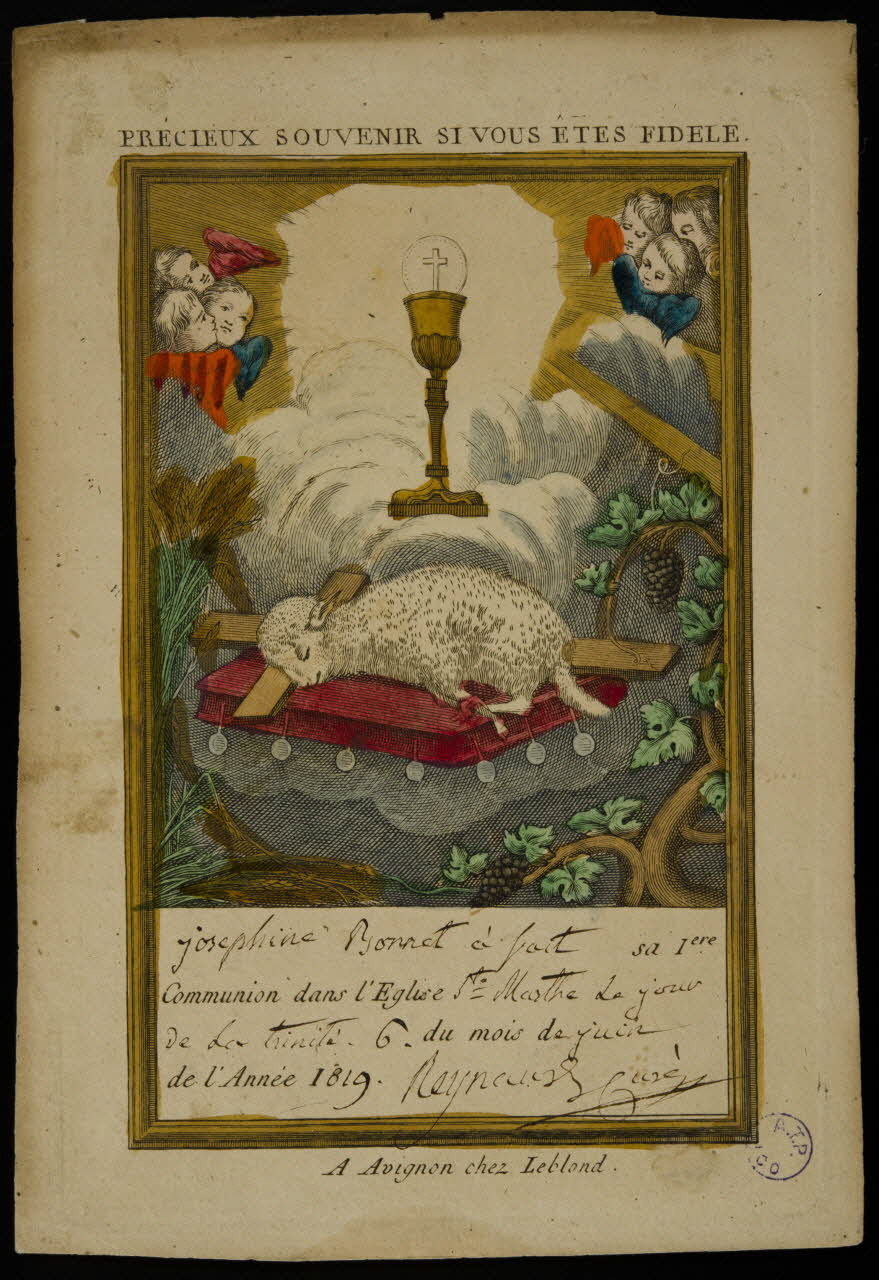 PRÉCIEUX SOUVENIR SI VOUS ÊTES FIDELE.
josephine Bonnet à fait sa 1ere
Communion dans l'Eglise Ste Marthe Le jour
de La trinité. 6. du mois de juin
de l'Année 1819. Reynaud Curé
A Avignon chez Leblond.
A.T.P.